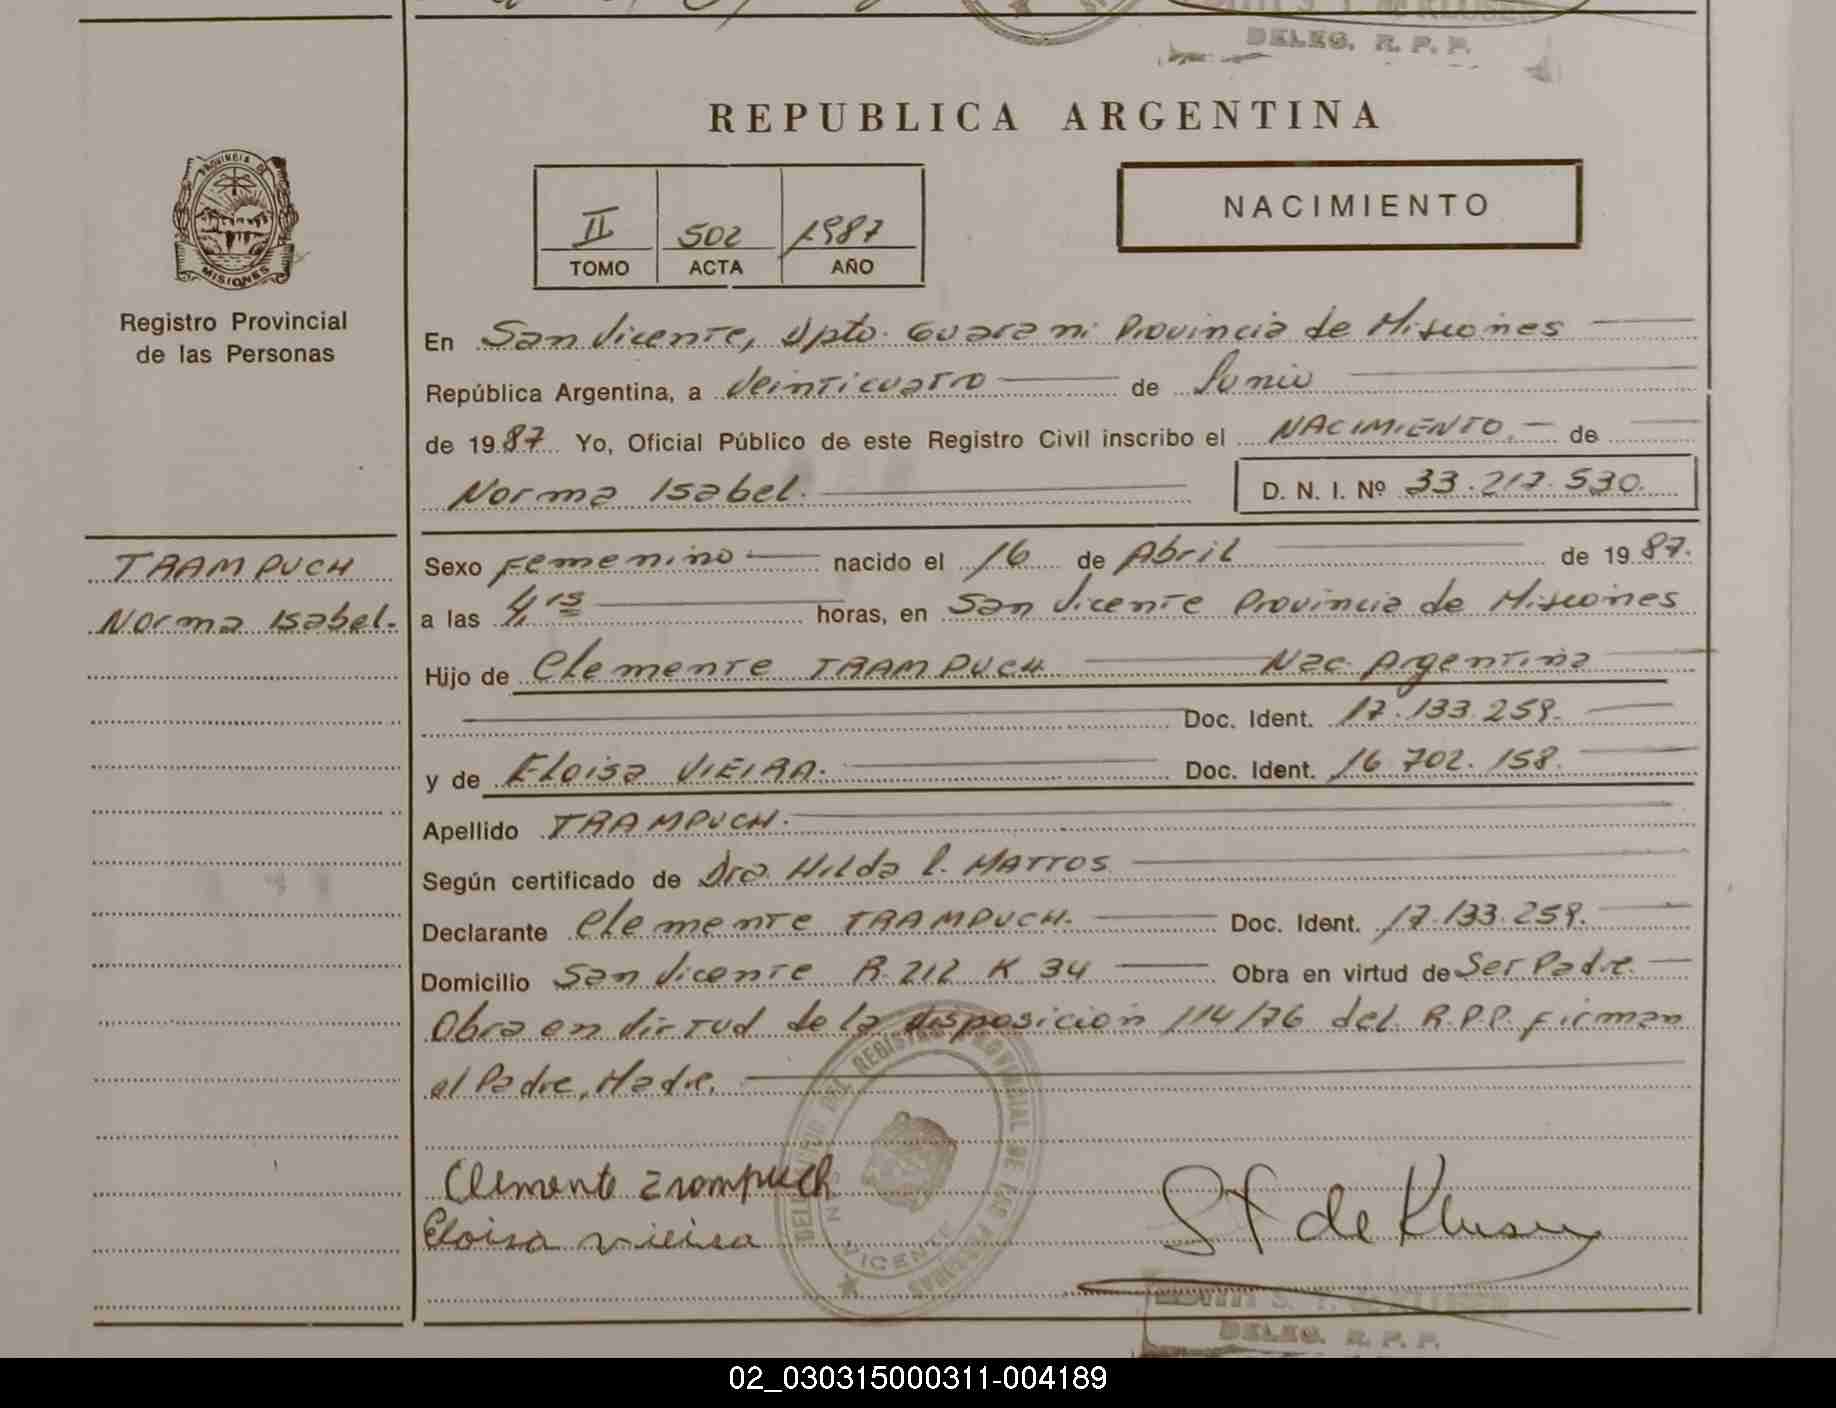 DELEG. R. P. P.
REPUBLICA ARGENTINA
PROVINCIA DE
MISIONES
Registro Provincial
de las Personas
II 502 1987
TOMO ACTA AÑO
NACIMIENTO
En San Vicente, Dpto. Guarani Provincia de Misiones
República Argentina, a Veinticuatro de Junio
de 1987 Yo, Oficial Público de este Registro Civil inscribo el NACIMIENTO. de
Norma Isabel. D. N. I. Nº 33.217.530.
TRAMPUCH
Norma Isabel.
Sexo Femenino nacido el 16 de Abril de 1987.
a las 4,15 horas, en San Vicente Provincia de Misiones
Hijo de Clemente TRAMPUCH Nac. Argentina
Doc. Ident. 17.133.259.
y de Eloisa VIEIRA. Doc. Ident. 16.702.158.
Apellido TRAMPUCH.
Según certificado de Dra. Hilda L. MATTOS
Declarante Clemente TRAMPUCH. Doc. Ident. 17.133.259.
Domicilio San Vicente R. 212 K 34 Obra en virtud de Ser Padre.
Obra en virtud de la disposición 114/76 del R.P.P. firman
el Padre, Madre.
DEL REGISTRO PROVINCIAL DE LAS PERSONAS
VICENTE
Clemente Trampuch
Eloisa Vieira
ST de Klusen
DELEG. R. P. P.
02_030315000311-004189